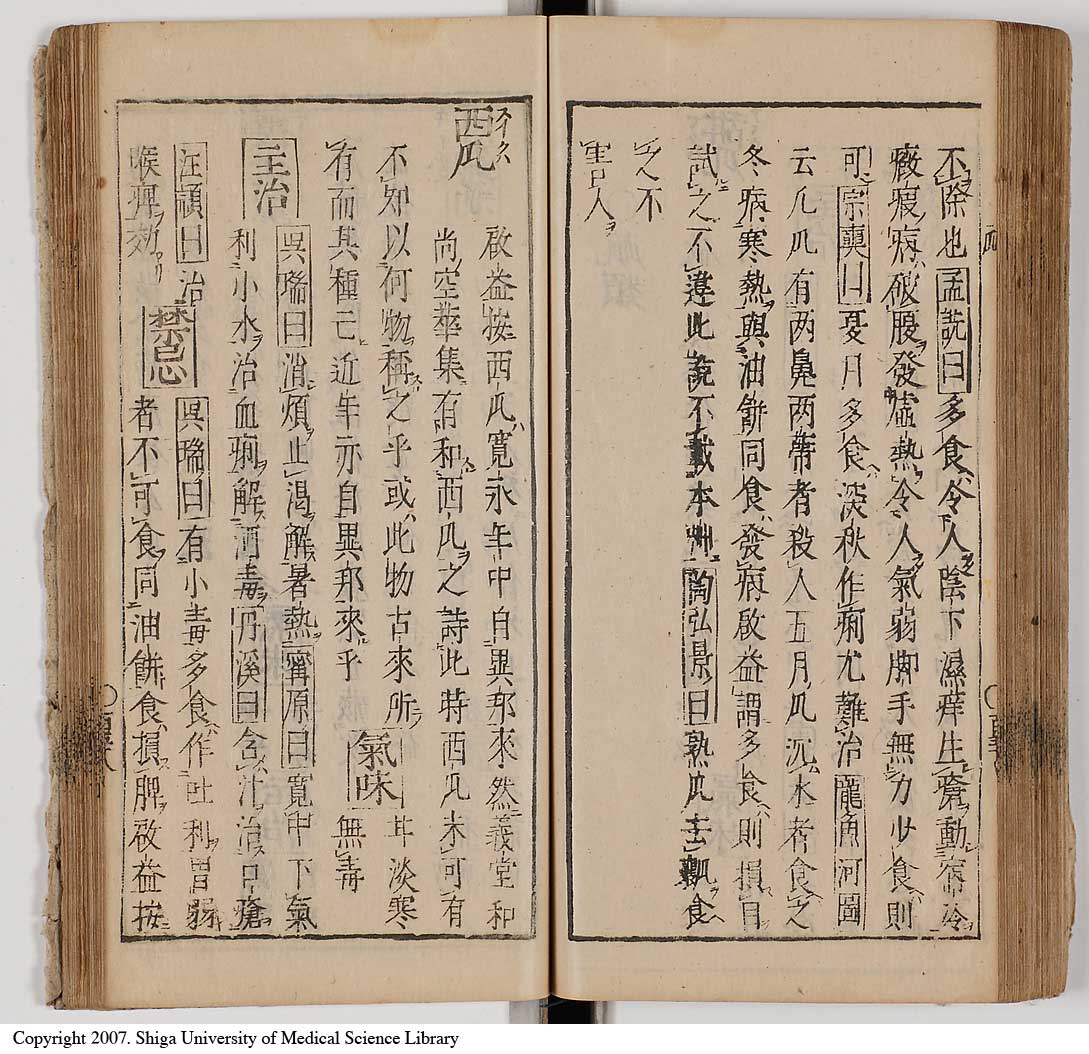 不際也孟詵曰多食令人陰下濕痒生瘡動病冷
癥瘕病破腹發虛熱令人氣弱脚手無力少食則
可宗奭曰夏月多食深秋作痢尤難治龍魚河圖
云凡瓜有两鼻两蒂者殺人五月瓜沉水者食之
冬病寒熱與油餅同食發病啟益謂多食則損目
試之不違此說不載本艸陶弘景曰熟瓜去瓤食
之不
害人
西瓜
啟益按西瓜寛永年中自異邦來然義堂和
尚空華集有和西瓜之詩此時西瓜未可有
不知以何物稱之乎或此物古來所
有而其種亡近年亦自異邦來乎
氣味
甘淡寒
無毒
主治
吳瑞曰消煩止渴解暑熱寗原曰寛中下氣
利小水治血痢解酒毒丹溪曰含汁治口瘡
汪頴曰治
喉痺効
禁忌
吳瑞曰有小毒多食作吐利胃弱
者不可食同油餅食損脾啟益按
Copyright 2007. Shiga University of Medical Science Library